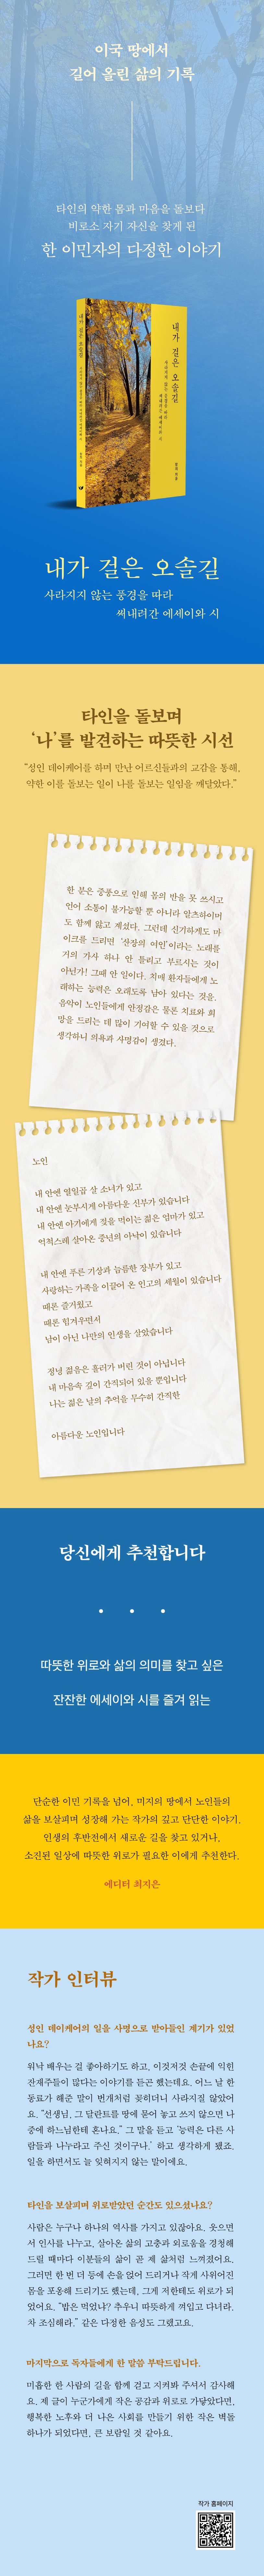 이국 땅에서
길어 올린 삶의 기록
타인의 약한 몸과 마음을 돌보다
비로소 자기 자신을 찾게 된
한 이민자의 다정한 이야기
내가 걸은 오솔길
내가 걸은 오솔길
사라지지 않는 풍경을 따라
써내려간 에세이와 시
내가 걸은 오솔길
사라지지 않는 풍경을 따라
써내려간 에세이와 시
타인을 돌보며
‘나’를 발견하는 따뜻한 시선
“성인 데이케어를 하며 만난 어르신들과의 교감을 통해,
약한 이를 돌보는 일이 나를 돌보는 일임을 깨달았다.”
한 분은 중풍으로 인해 몸의 반을 못 쓰시고
언어 소통이 불가능할 뿐 아니라 알츠하이머
도 함께 앓고 계셨다. 그런데 신기하게도 마
이크를 드리면 ‘선창의 여인’이라는 노래를
거의 가사 하나 안 틀리고 부르시는 것이
아닌가! 그때 안 일이다. 치매 환자들에게 노
래하는 능력은 오래도록 남아 있다는 것을.
음악이 노인들에게 안정감은 물론 치료와 희
망을 드리는 데 많이 기여할 수 있을 것으로
생각하니 의욕과 사명감이 생겼다.
노인
내 안엔 열일곱 살 소녀가 있고
내 안엔 눈부시게 아름다운 신부가 있습니다
내 안엔 아기에게 젖을 먹이는 젊은 엄마가 있고
억척스레 살아온 중년의 아낙이 있습니다
내 안엔 푸른 기상과 늠름한 장부가 있고
사랑하는 가족을 이끌어 온 인고의 세월이 있습니다
때론 즐거웠고
때론 힘겨우면서
남이 아닌 나만의 인생을 살았습니다
정녕 젊음은 흘러가 버린 것이 아닙니다
내 마음속 깊이 간직되어 있을 뿐입니다
나는 젊은 날의 추억을 무수히 간직한
아름다운 노인입니다
당신에게 추천합니다
따뜻한 위로와 삶의 의미를 찾고 싶은
잔잔한 에세이와 시를 즐겨 읽는
단순한 이민 기록을 넘어, 미지의 땅에서 노인들의
삶을 보살피며 성장해 가는 작가의 깊고 단단한 이야기.
인생의 후반전에서 새로운 길을 찾고 있거나,
소진된 일상에 따뜻한 위로가 필요한 이에게 추천한다.
에디터 최지은
작가 인터뷰
성인 데이케어의 일을 사명으로 받아들인 계기가 있었
나요?
워낙 배우는 걸 좋아하기도 하고, 이것저것 손끝에 익힌
잔재주들이 많다는 이야기를 듣곤 했는데요. 어느 날 한
동료가 해준 말이 번개처럼 꽂히더니 사라지질 않았어
요. “선생님, 그 달란트를 땅에 묻어 놓고 쓰지 않으면 나
중에 하느님한테 혼나요.” 그 말을 듣고 ‘능력은 다른 사
람들과 나누라고 주신 것이구나.’ 하고 생각하게 됐죠.
일을 하면서도 늘 잊혀지지 않는 말이에요.
타인을 보살피며 위로받았던 순간도 있으셨나요?
사람은 누구나 하나의 역사를 가지고 있잖아요. 웃으면
서 인사를 나누고, 살아온 삶의 고충과 외로움을 경청해
드릴 때마다 이분들의 삶이 곧 제 삶처럼 느껴졌어요.
그러면 한 번 더 등에 손을 얹어 드리거나 작게 사위어진
몸을 포옹해 드리기도 했는데, 그게 저한테도 위로가 되
었어요. “밥은 먹었냐? 추우니 따뜻하게 껴입고 다녀라.
차 조심해라.” 같은 다정한 음성도 그랬고요.
마지막으로 독자들에게 한 말씀 부탁드립니다.
미흡한 한 사람의 길을 함께 걷고 지켜봐 주셔서 감사해
요. 제 글이 누군가에게 작은 공감과 위로로 가닿았다면,
행복한 노후와 더 나은 사회를 만들기 위한 작은 벽돌
하나가 되었다면, 큰 보람일 것 같아요.
작가 홈페이지